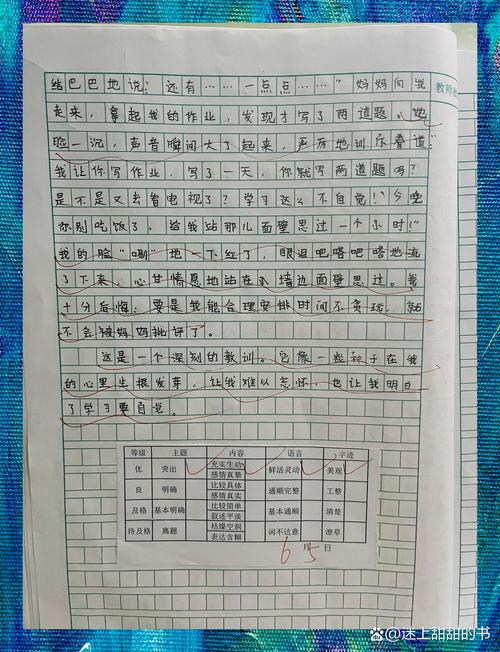 结巴巴地说：“还有……一点点……”妈妈向我
走来，拿起我的作业，发现才写了两道题，她
脸一沉，声音瞬间大了起来，严厉地训斥着道：
我让你写作业，写了一天，你就写两道题吗？
是不是又去看电视了？学习这么不自觉！今晚
你别吃饭了，给我站那儿面壁思过一个小时！”
我的脸“唰”地一下红了，眼泪吧嗒吧嗒地流
了下来，心甘情愿地站在小墙边面壁思过。我
十分后悔：要是我能合理安排时间不贪玩，就
不会被妈妈批评了。
这是一个深刻的教训。它像一粒种子在我
的心里生根发芽，让我难以忘怀，也让我明白
了学习要自觉。
教师
等级 主题 内容 语言 字迹
优 突出 充实生动 感情真挚 鲜活灵动 美观
良 明确 比较具体 感情真实 通顺完整 工整
及格 基本明确 比较简单 叙述平淡 基本通顺 清楚
待及格 离题 枯燥空洞 表达含糊 词不达意 潦草
6月5日
百家号/迷上甜甜的书